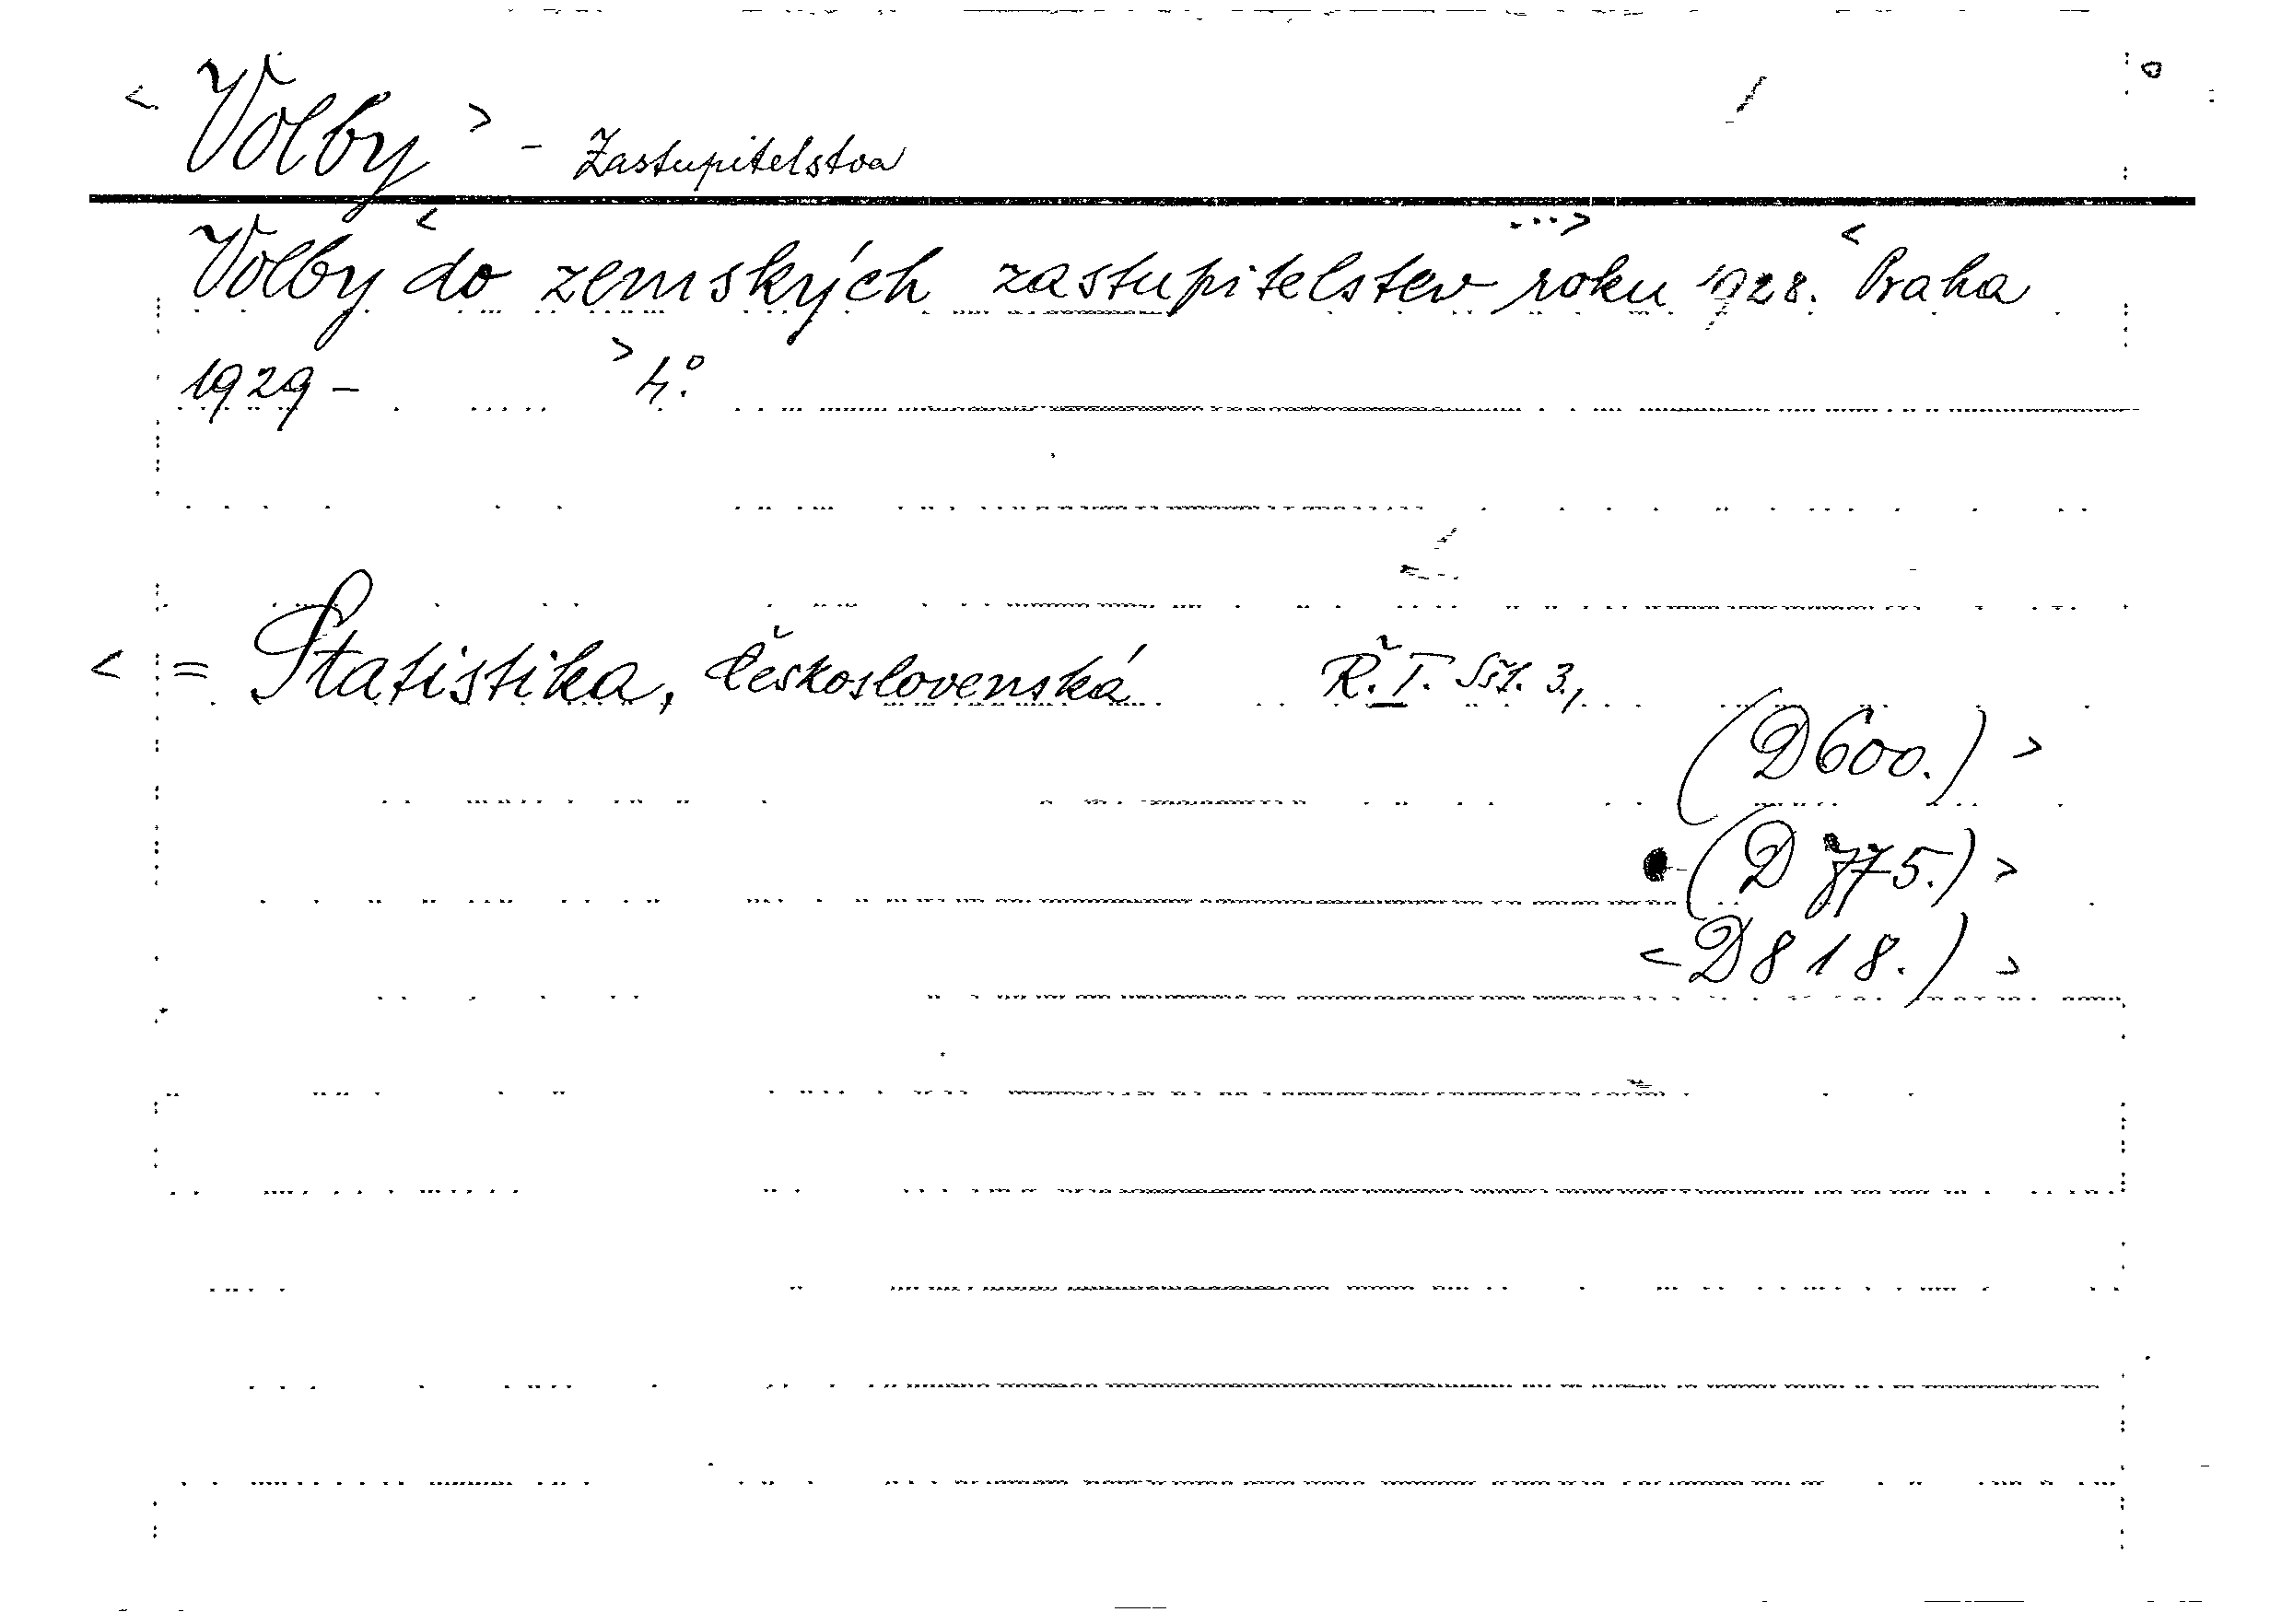 < Volby > - Zastupitelstva
Volby < do zemských zastupitelstev ...> roku 1928. < Praha
1929 - > 4°.
< = Statistika, Československá Ř. I. Sš1. 3.,
(D 600.) >
(D 775.) >
< D 818.) >